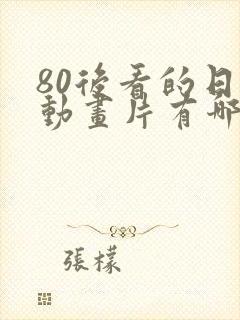 80後看的日
動畫片有哪
張檬